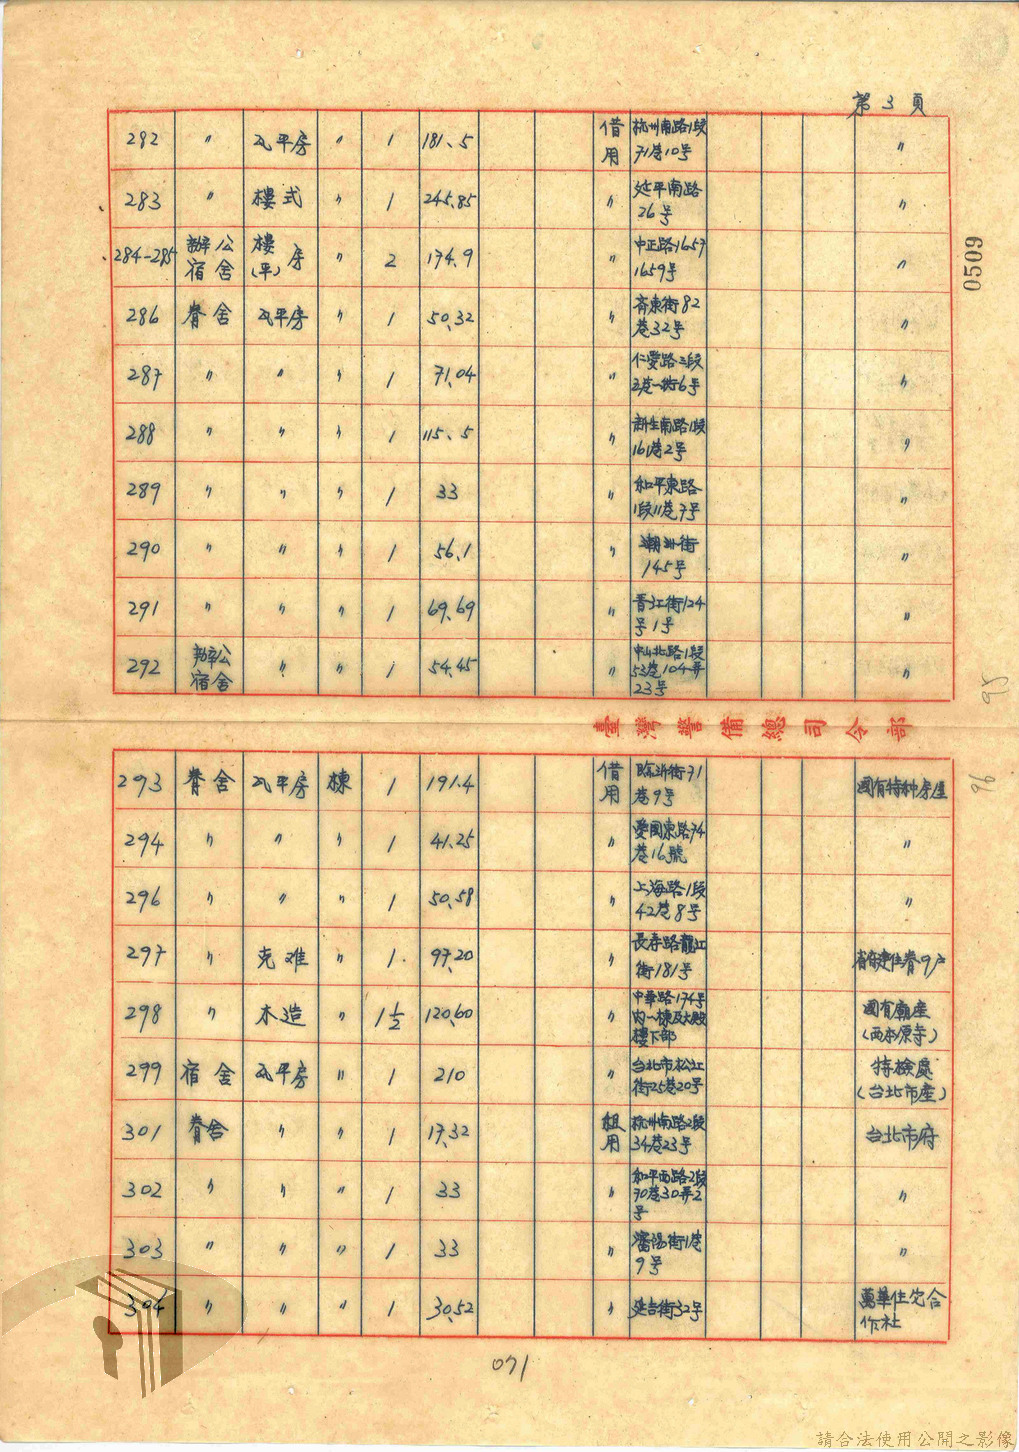 第3頁
282 〃 瓦平房 〃 1 181.5 借用 杭州南路1段71巷10号 〃
283 〃 樓式 〃 1 245.85 〃 延平南路26号 〃
284-285 辦公宿舍 樓(平)房 〃 2 174.9 〃 中正路1657 1659号 〃
286 眷舍 瓦平房 〃 1 50.32 〃 齐東街82巷32号 〃
287 〃 〃 〃 1 71.04 〃 仁愛路三段2巷一街6号 〃
288 〃 〃 〃 1 115.5 〃 新生南路1段161巷2号 〃
289 〃 〃 〃 1 33 〃 和平東路1段11巷7号 〃
290 〃 〃 〃 1 56.1 〃 潮洲街145号 〃
291 〃 〃 〃 1 69.69 〃 晋江街124号1号 〃
292 辦公宿舍 〃 〃 1 54.45 〃 中山北路1段53巷104弄23号 〃
臺灣警備總司令部
293 眷舍 瓦平房 棟 1 191.4 借用 臨沂街71巷9号 國有特种房屋
294 〃 〃 〃 1 41.25 〃 愛國東路74巷16號 〃
296 〃 〃 〃 1 50.58 〃 上海路1段42巷8号 〃
297 〃 克难 〃 1. 97.20 〃 長春路龍江街181号 眷9户
298 〃 木造 〃 1½ 120.60 〃 中華路174号內一棟及大殿樓下部 國有廟産(西本原寺)
299 宿舍 瓦平房 〃 1 210 〃 台北市松江街25巷20号 特檢處(台北市產)
301 眷舍 〃 〃 1 17.32 租用 杭州南路2段34巷23号 台北市府
302 〃 〃 〃 1 33 〃 和平西路2段70巷30弄2号 〃
303 〃 〃 〃 1 33 〃 瀋陽街1巷9号 〃
304 〃 〃 〃 1 30.52 〃 延吉街32号 萬華住宅合作社
071
0509
95
96
請合法使用公開之影像